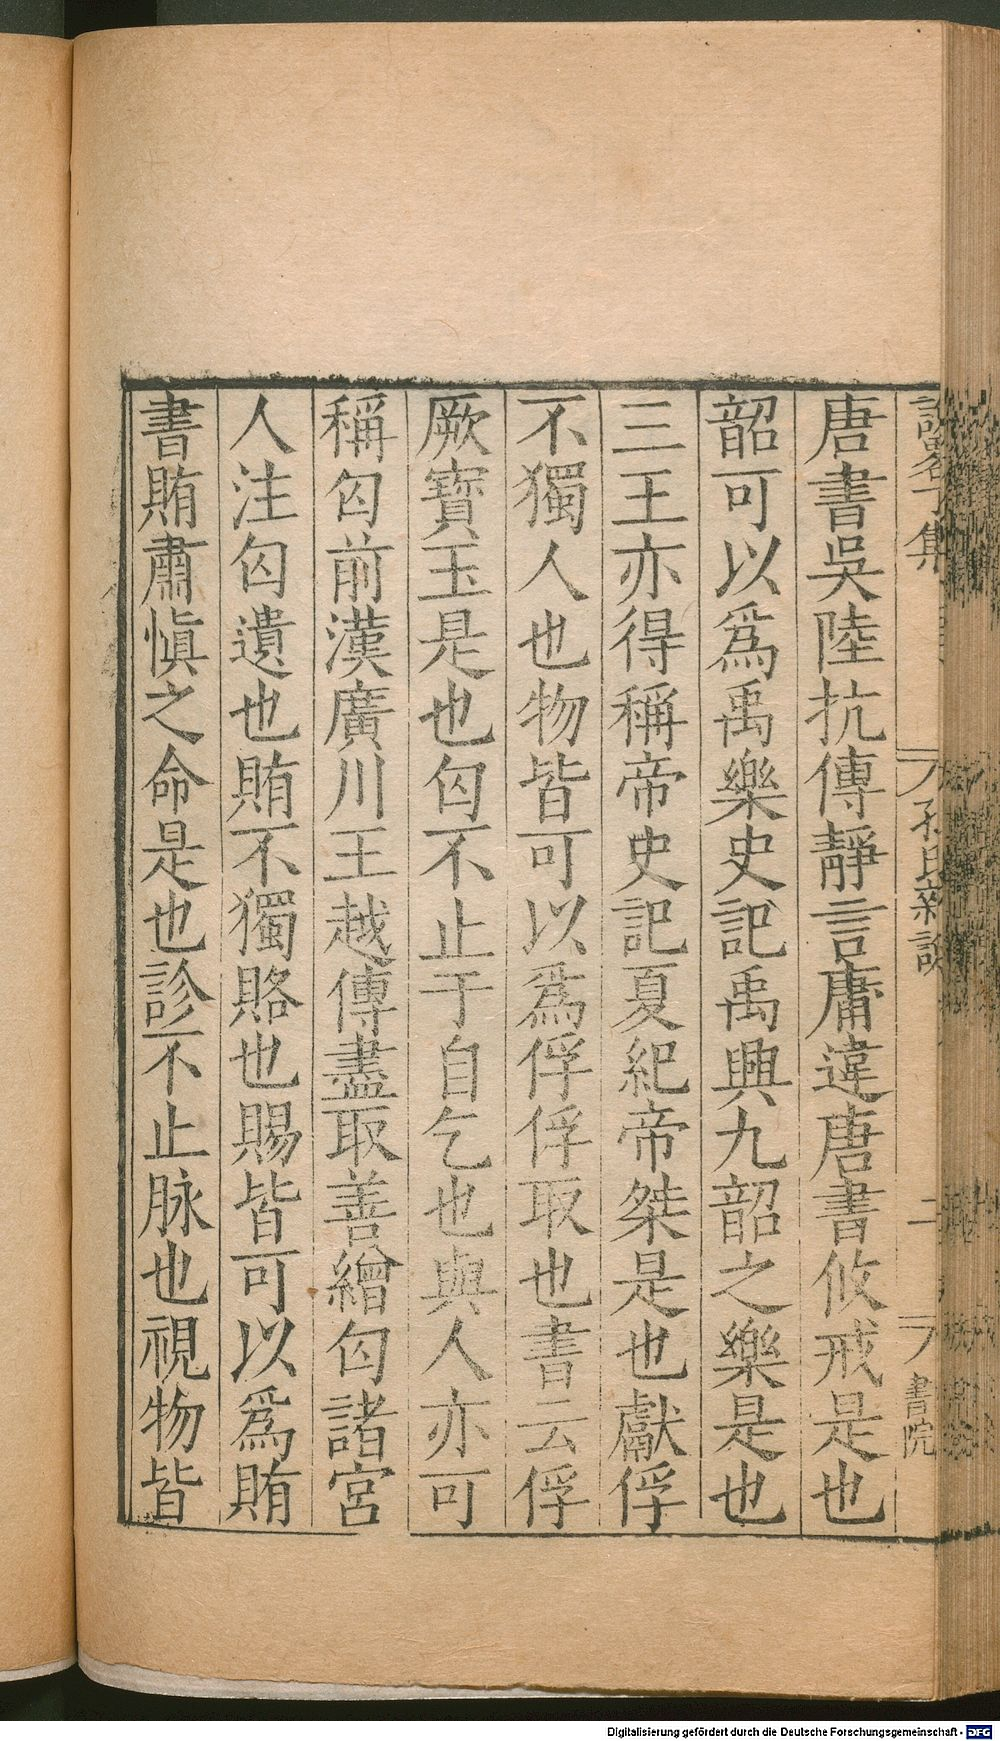 唐書吳陸抗傳靜言庸違唐書攸戒是也
韶可以爲禹樂史記禹興九韶之樂是也
三王亦得稱帝史記夏紀帝桀是也獻俘
不獨人也物皆可以爲俘俘取也書云俘
厥寶玉是也匃不止于自乞也與人亦可
稱匃前漢廣川王越傳盡取善繒匃諸宮
人注匃遺也賄不獨賂也賜皆可以爲賄
書賄肅慎之命是也診不止脉也視物皆
集
二
書院
Digitalisierung gefördert durch die Deutsche Forschungsgemeinschaft - DFG